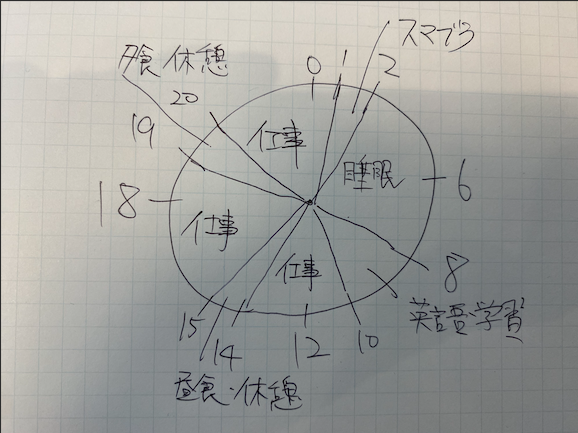 スマブラ
夕食 休憩
0
1
2
20
19
仕事
睡眠
18
6
仕事
仕事
8
英語学習
15
14
12
10
昼食・休憩